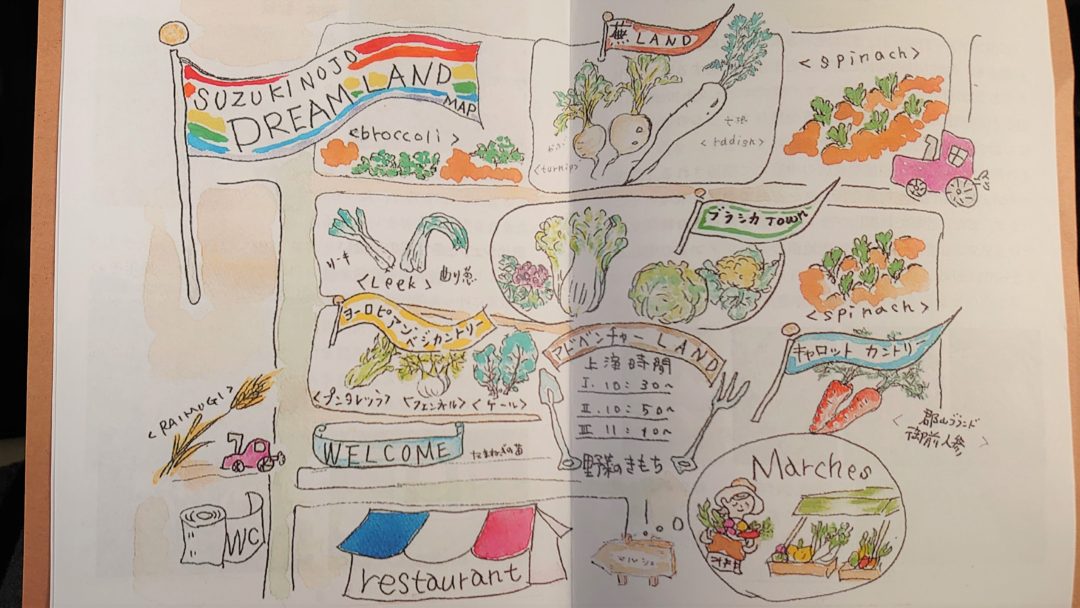 SUZUKINOJO
DREAM LAND
MAP
<broccoli>
蕪 LAND
かぶ
<turnip>
大根
<raddish>
<spinach>
リーキ
<Leek>
曲り葱
ブラシカ Town
<spinach>
ヨーロピアン・
ベジカントリー
<プンタレッラ>
<フェンネル>
<ケール>
アドベンチャー LAND
上演時間
I. 10:30~
II. 10:50~
III 11:10~
野菜のきもち
キャロット カントリー
<郡山ブランド
御前人参>
<RAIMUGI>
WELCOME
たまねぎの苗
WC
restaurant
マルシェ
Marches